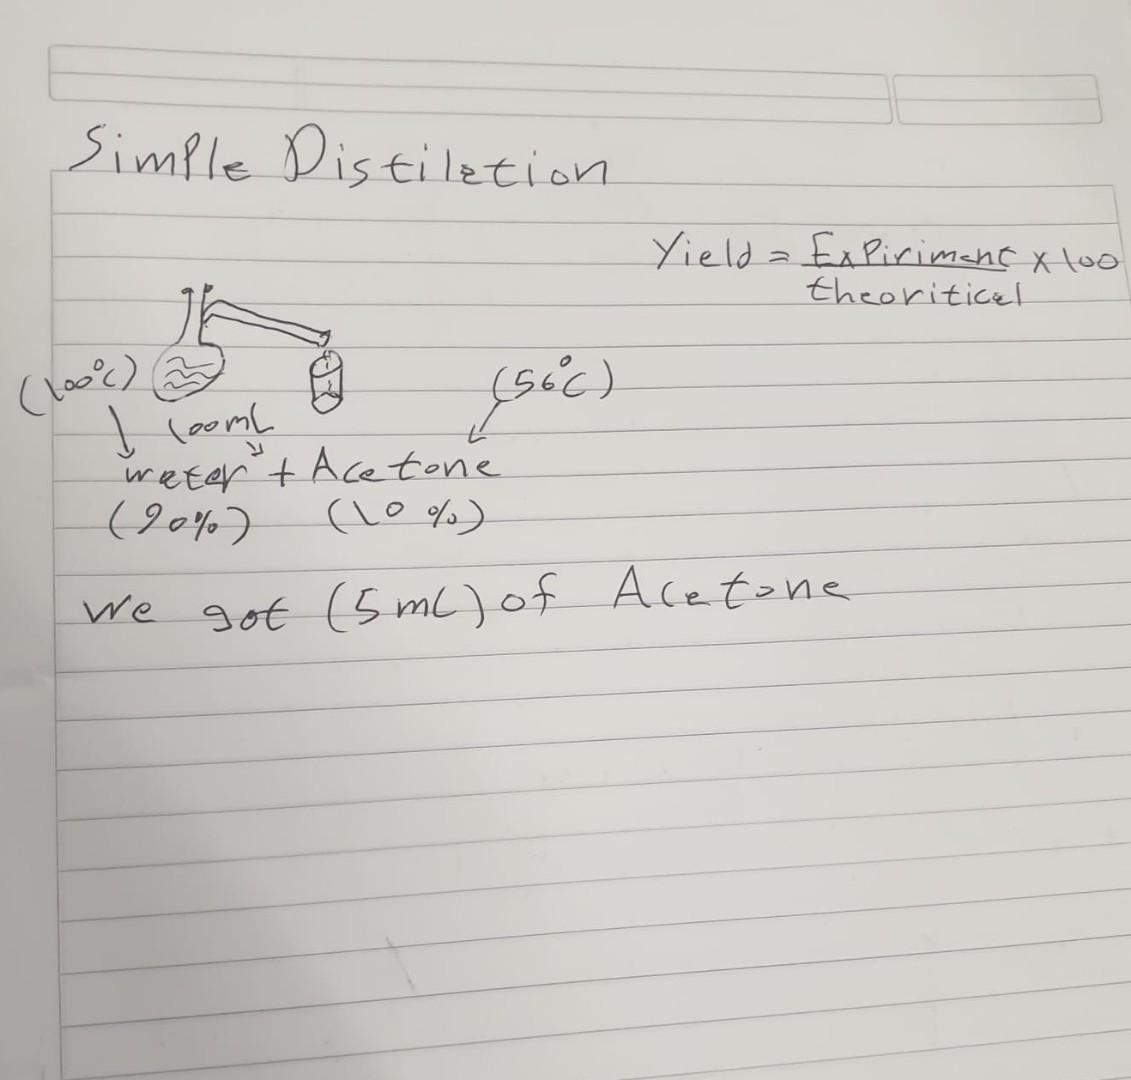 Simple Distiletion
Yield = Expiriment × 100
theoriticel
(100°C)
(56°C)
100mL
weter + Acetone
(90%) (10%)
we got (5mL) of Acetone